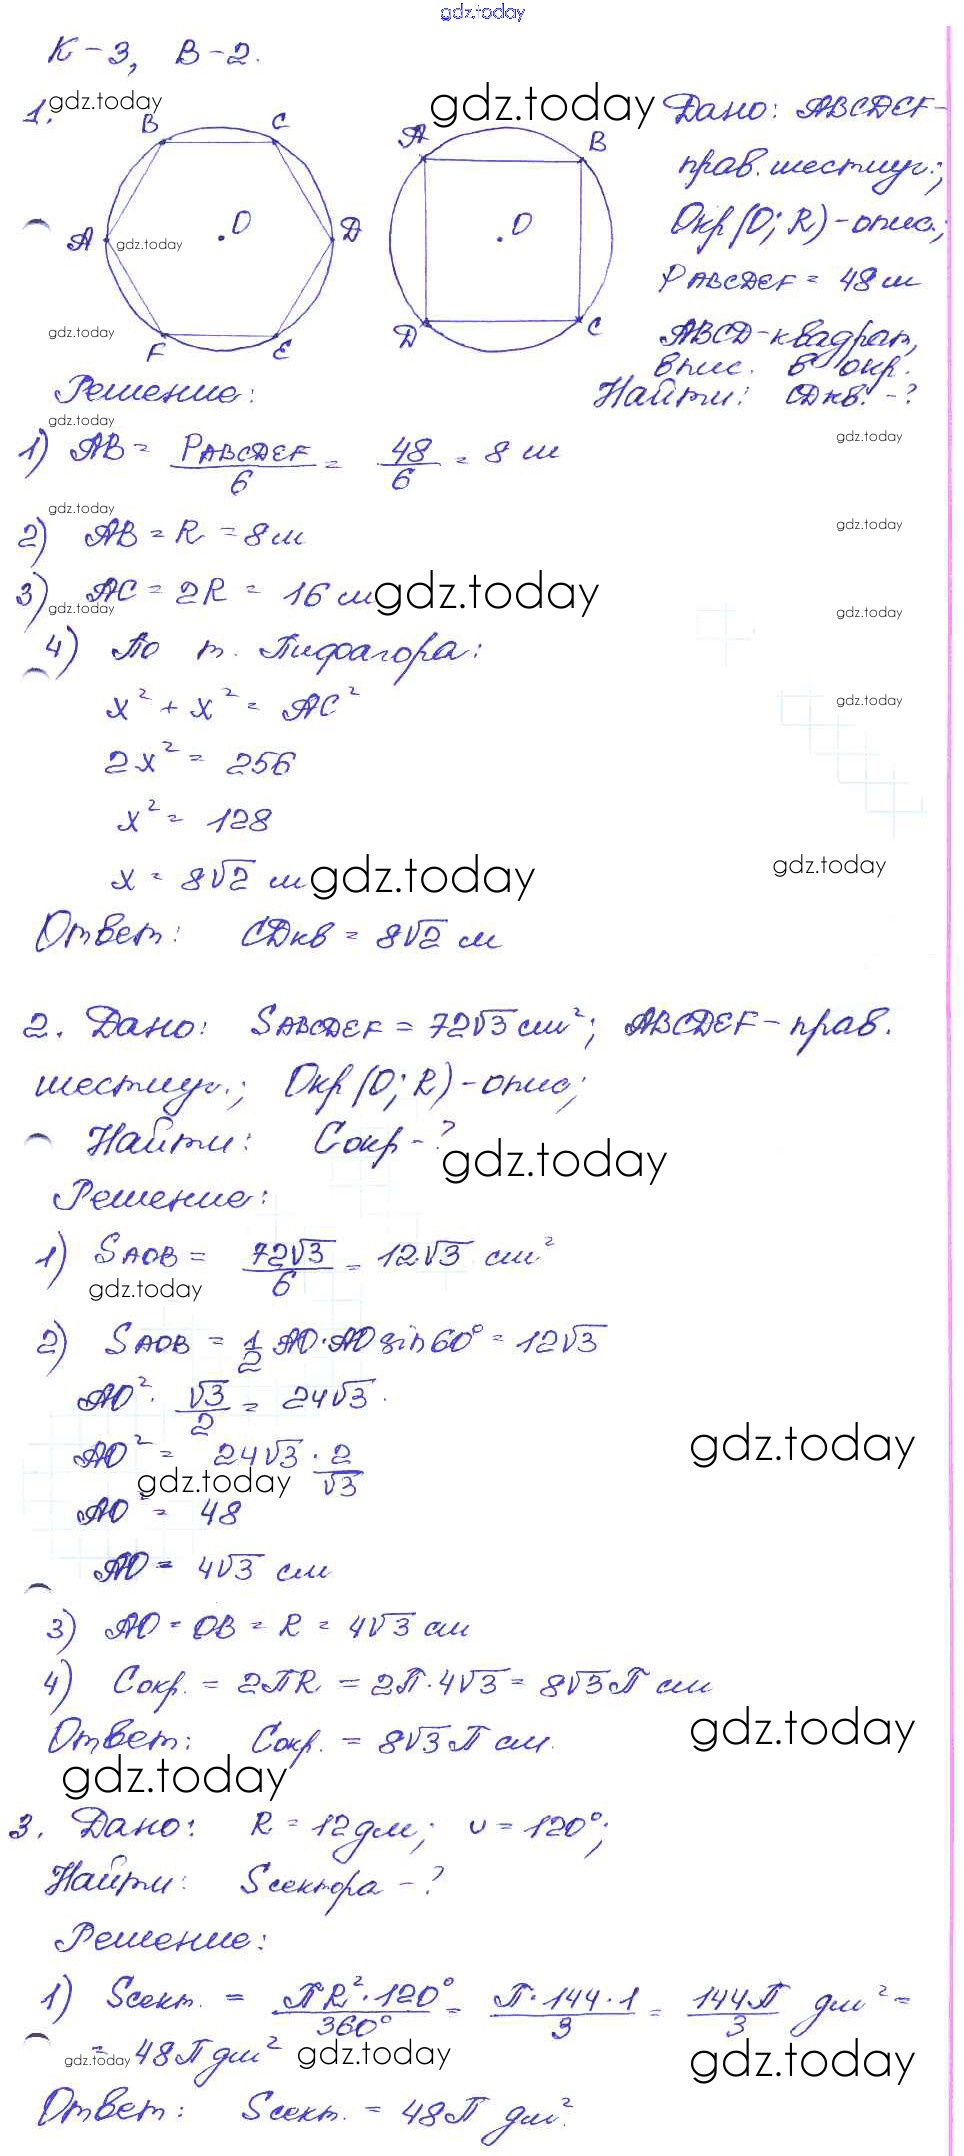 gdz.today
К-3, В-2.
gdz.today
gdz.today
1.
B C
A O D
F E
A B
O
D C
gdz.today
gdz.today
Дано: ABCDEF-
прав. шестиуг.;
Окр(O; R)-опис.;
P ABCDEF = 48 м
ABCD-квадрат,
впис. в окр.
Найти: CDкв. -?
Решение:
gdz.today
gdz.today
1) AB = P ABCDEF/6 = 48/6 = 8 м
gdz.today
gdz.today
2) AB = R = 8 м
3) AC = 2R = 16 м
gdz.today
gdz.today
gdz.today
4) По т. Пифагора:
x² + x² = AC²
gdz.today
2x² = 256
x² = 128
x = 8√2 м
gdz.today
gdz.today
Ответ: CDкв = 8√2 м
2. Дано: S ABCDEF = 72√3 см²; ABCDEF-прав.
шестиуг.; Окр(O; R)-опис;
Найти: Cокр-?
gdz.today
Решение:
1) S AOB = 72√3/6 = 12√3 см²
gdz.today
2) S AOB = 1/2 AO·AO sin60° = 12√3
AO² · √3/2 = 24√3.
AO² = 24√3 · 2/√3
gdz.today
gdz.today
AO² = 48
AO = 4√3 см
3) AO = OB = R = 4√3 см
4) Cокр. = 2ПR = 2П·4√3 = 8√3П см
Ответ: Cокр. = 8√3П см.
gdz.today
gdz.today
3. Дано: R = 12 дм; ∪ = 120°;
Найти: Sсектора -?
Решение:
1) Sсект. = ПR²·120°/360° = П·144·1/3 = 144П/3 дм² =
= 48П дм²
gdz.today
gdz.today
gdz.today
Ответ: Sсект. = 48П дм².